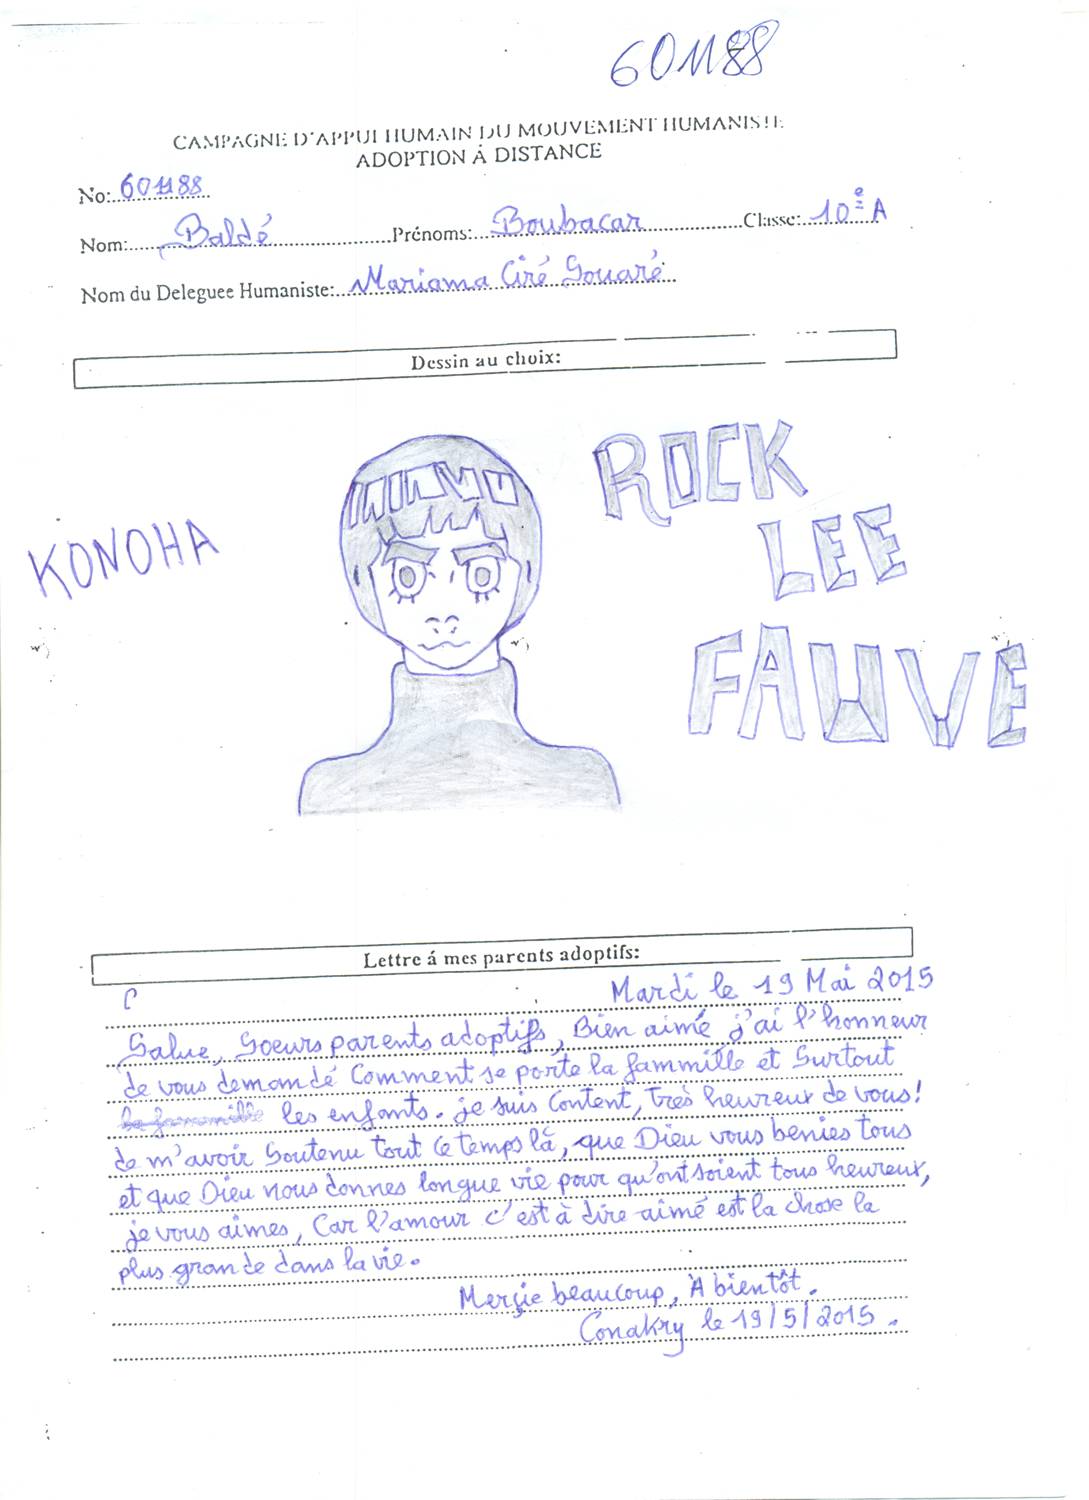 601188
CAMPAGNE D'APPUI HUMAIN DU MOUVEMENT HUMANISTE
ADOPTION Á DISTANCE
No: 601188
Nom: Baldé Prénoms: Boubacar Classe: 10è A
Nom du Deleguee Humaniste: Mariama Ciré Souaré
Dessin au choix:
ROCK
LEE
KONOHA
FAUVE
Lettre á mes parents adoptifs:
Mardi le 19 Mai 2015
Salue, Soeurs parents adoptifs, Bien aimé j'ai l'honneur
de vous demandé Comment se porte la fammille et Surtout
la fammille les enfants. je suis Content, très heureux de vous!
de m'avoir Soutenu tout ce temps là, que Dieu vous benies tous
et que Dieu nous donnes longue vie pour qu'ont soient tous heureux,
je vous aimes, Car l'amour c'est à dire aimé est la chose la
plus grande dans la vie.
Merçie beaucoup, A bientôt.
Conakry le 19/5/2015.